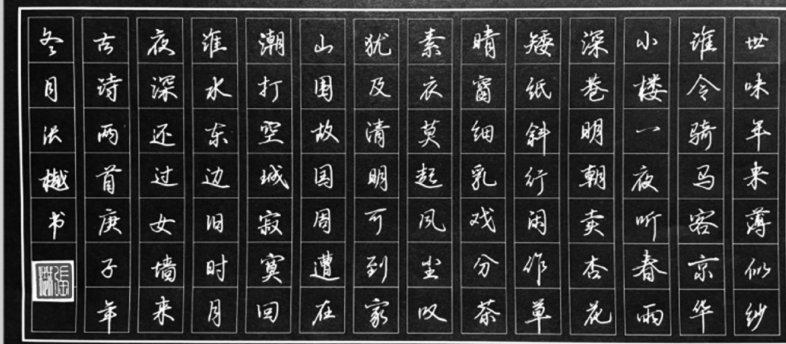 世味年来薄似纱
谁令骑马客京华
小楼一夜听春雨
深巷明朝卖杏花
矮纸斜行闲作草
晴窗细乳戏分茶
素衣莫起风尘叹
犹及清明可到家
山围故国周遭在
潮打空城寂寞回
淮水东边旧时月
夜深还过女墙来
古诗两首庚子年
冬月洪樾书